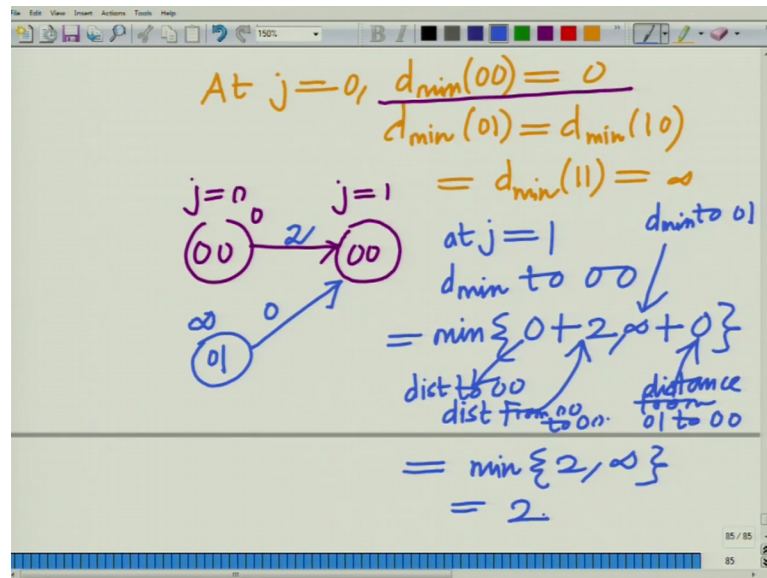 File Edit View Insert Actions Tools Help
150%
B I
At j=0, dmin(00) = 0
dmin(01) = dmin(10)
= dmin(11) = ∞
j=0 j=1
0
00 2 00
∞ 0
01
at j=1
dmin to 01
dmin to 00
= min{0+2,∞+0}
dist to 00
dist From 00
to 00.
distance
from
01 to 00
= min{2,∞}
= 2.
85 / 85
85